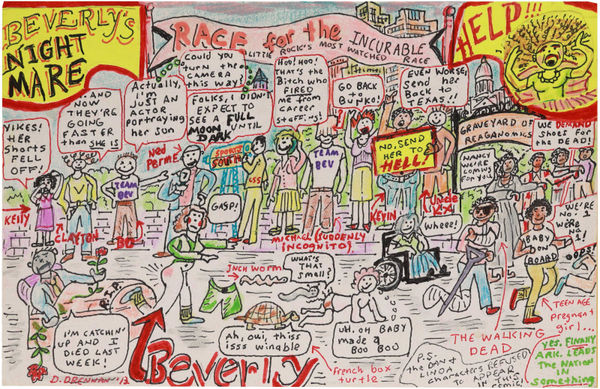 BEVERLY'S
NIGHT
MARE
RACE for the INCURABLE
LITTLE ROCK'S MOST WATCHED RACE
HELP!!!
YIKES!
HER
SHORTS
FELL
OFF!
...AND
NOW
THEY'RE
GOING
FASTER
than SHE IS
Actually,
I'm
JUST AN
ACTOR
Portraying
her SON
Could you
turn the
CAMERA
this WAY!
FOLKS, I DIDN'T
EXPECT TO
SEE A FULL
MOON UNTIL
DARK
HOO! HOO!
THAT'S the
Bitch who
FIRED
me from
career
staffing!
GO BACK
to
BUNKO!
EVEN WORSE,
SEND
HER
BACK to
TEXAS!
NO, SEND
HER TO
HELL!
GRAVEYARD OF
REAGANOMICS
NANCY
WE'RE
COMING
FOR YOU
WE DEMAND
SHOES FOR
THE DEAD!
Ned
Perme
SPORTS
SOUTH
TEAM
BEV
LSS
TEAM
BEV
KELLY
CLAYTON
BO
GASP!
MICHAEL (SUDDENLY
INCOGNITO)
KEVIN
Uncle
Wheee!
WE'RE
NO. 1
WE'RE
NO. 1
OOPS!
BABY
ON
BOARD
INCH WORM
WHAT'S
THAT
Smell?
I'M CATCHIN'
UP AND I
DIED LAST
WEEK!
Beverly
Ah, oui, thiss
isss winable
UH. OH BABY
made a
BOO BOO
French box
turtle
THE WALKING
DEAD
TEEN AGE
pregnant
girl...
P.S.
the DAN &
LINDA
CHARACTERS REFUSED
to APPEAR
IN THIS
YES, FINALLY
ARK. LEADS
THE NATION
IN
Something
D. DRENNAN '13